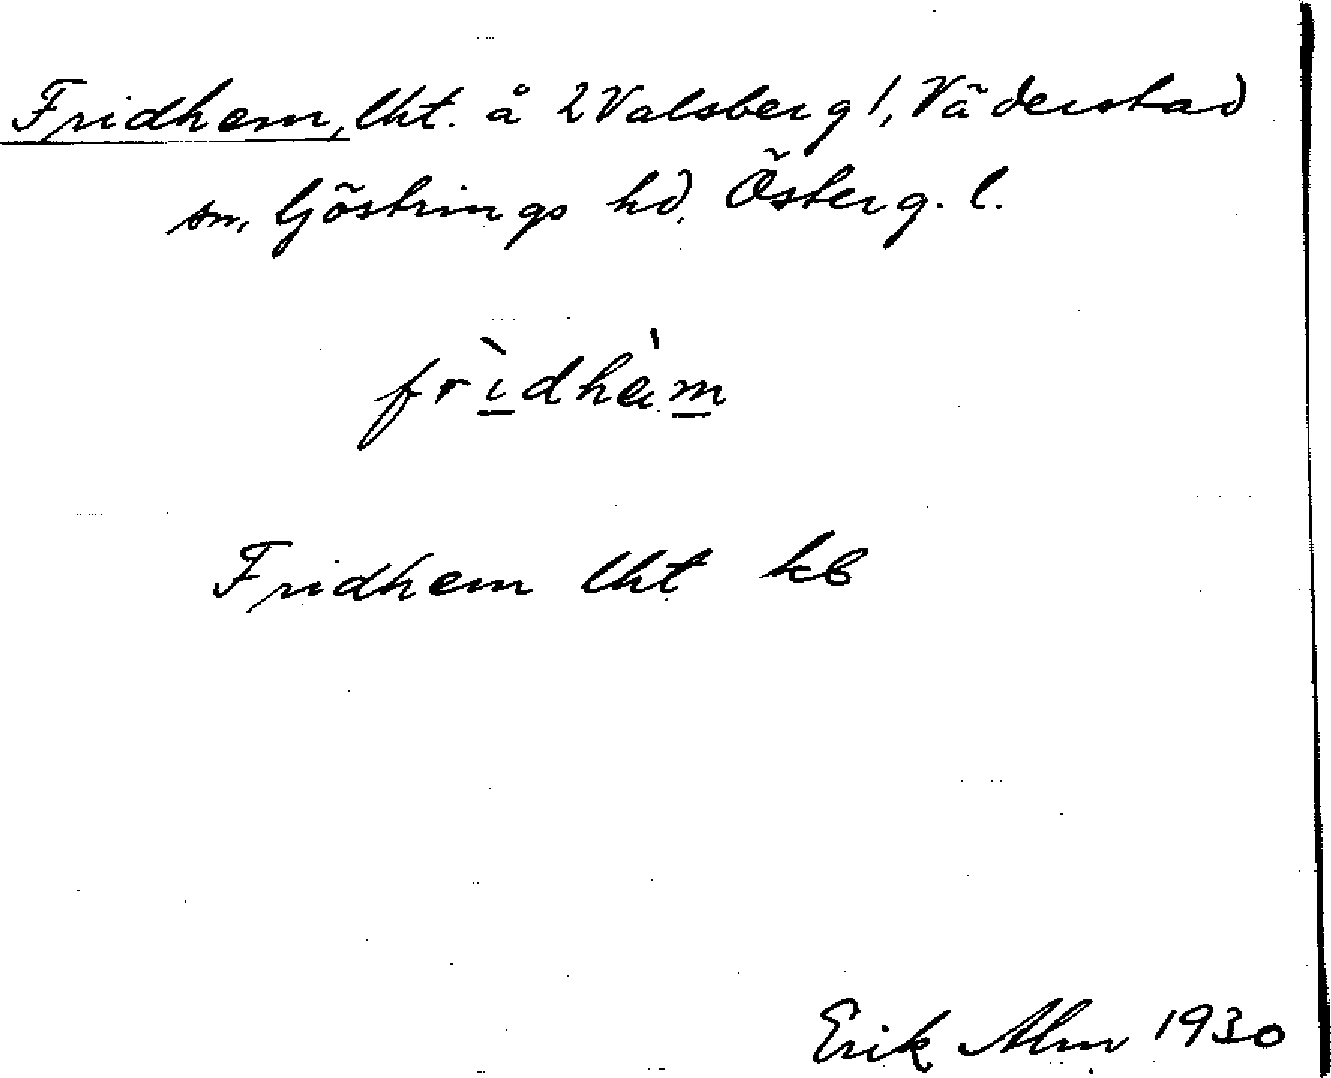 Fridhem, lht. å 2 Valsberg 1, Väderstad
sn, Göstrings hd. Österg. l.
frìdhèm
Fridhem lht kb
Erik Alm 1930